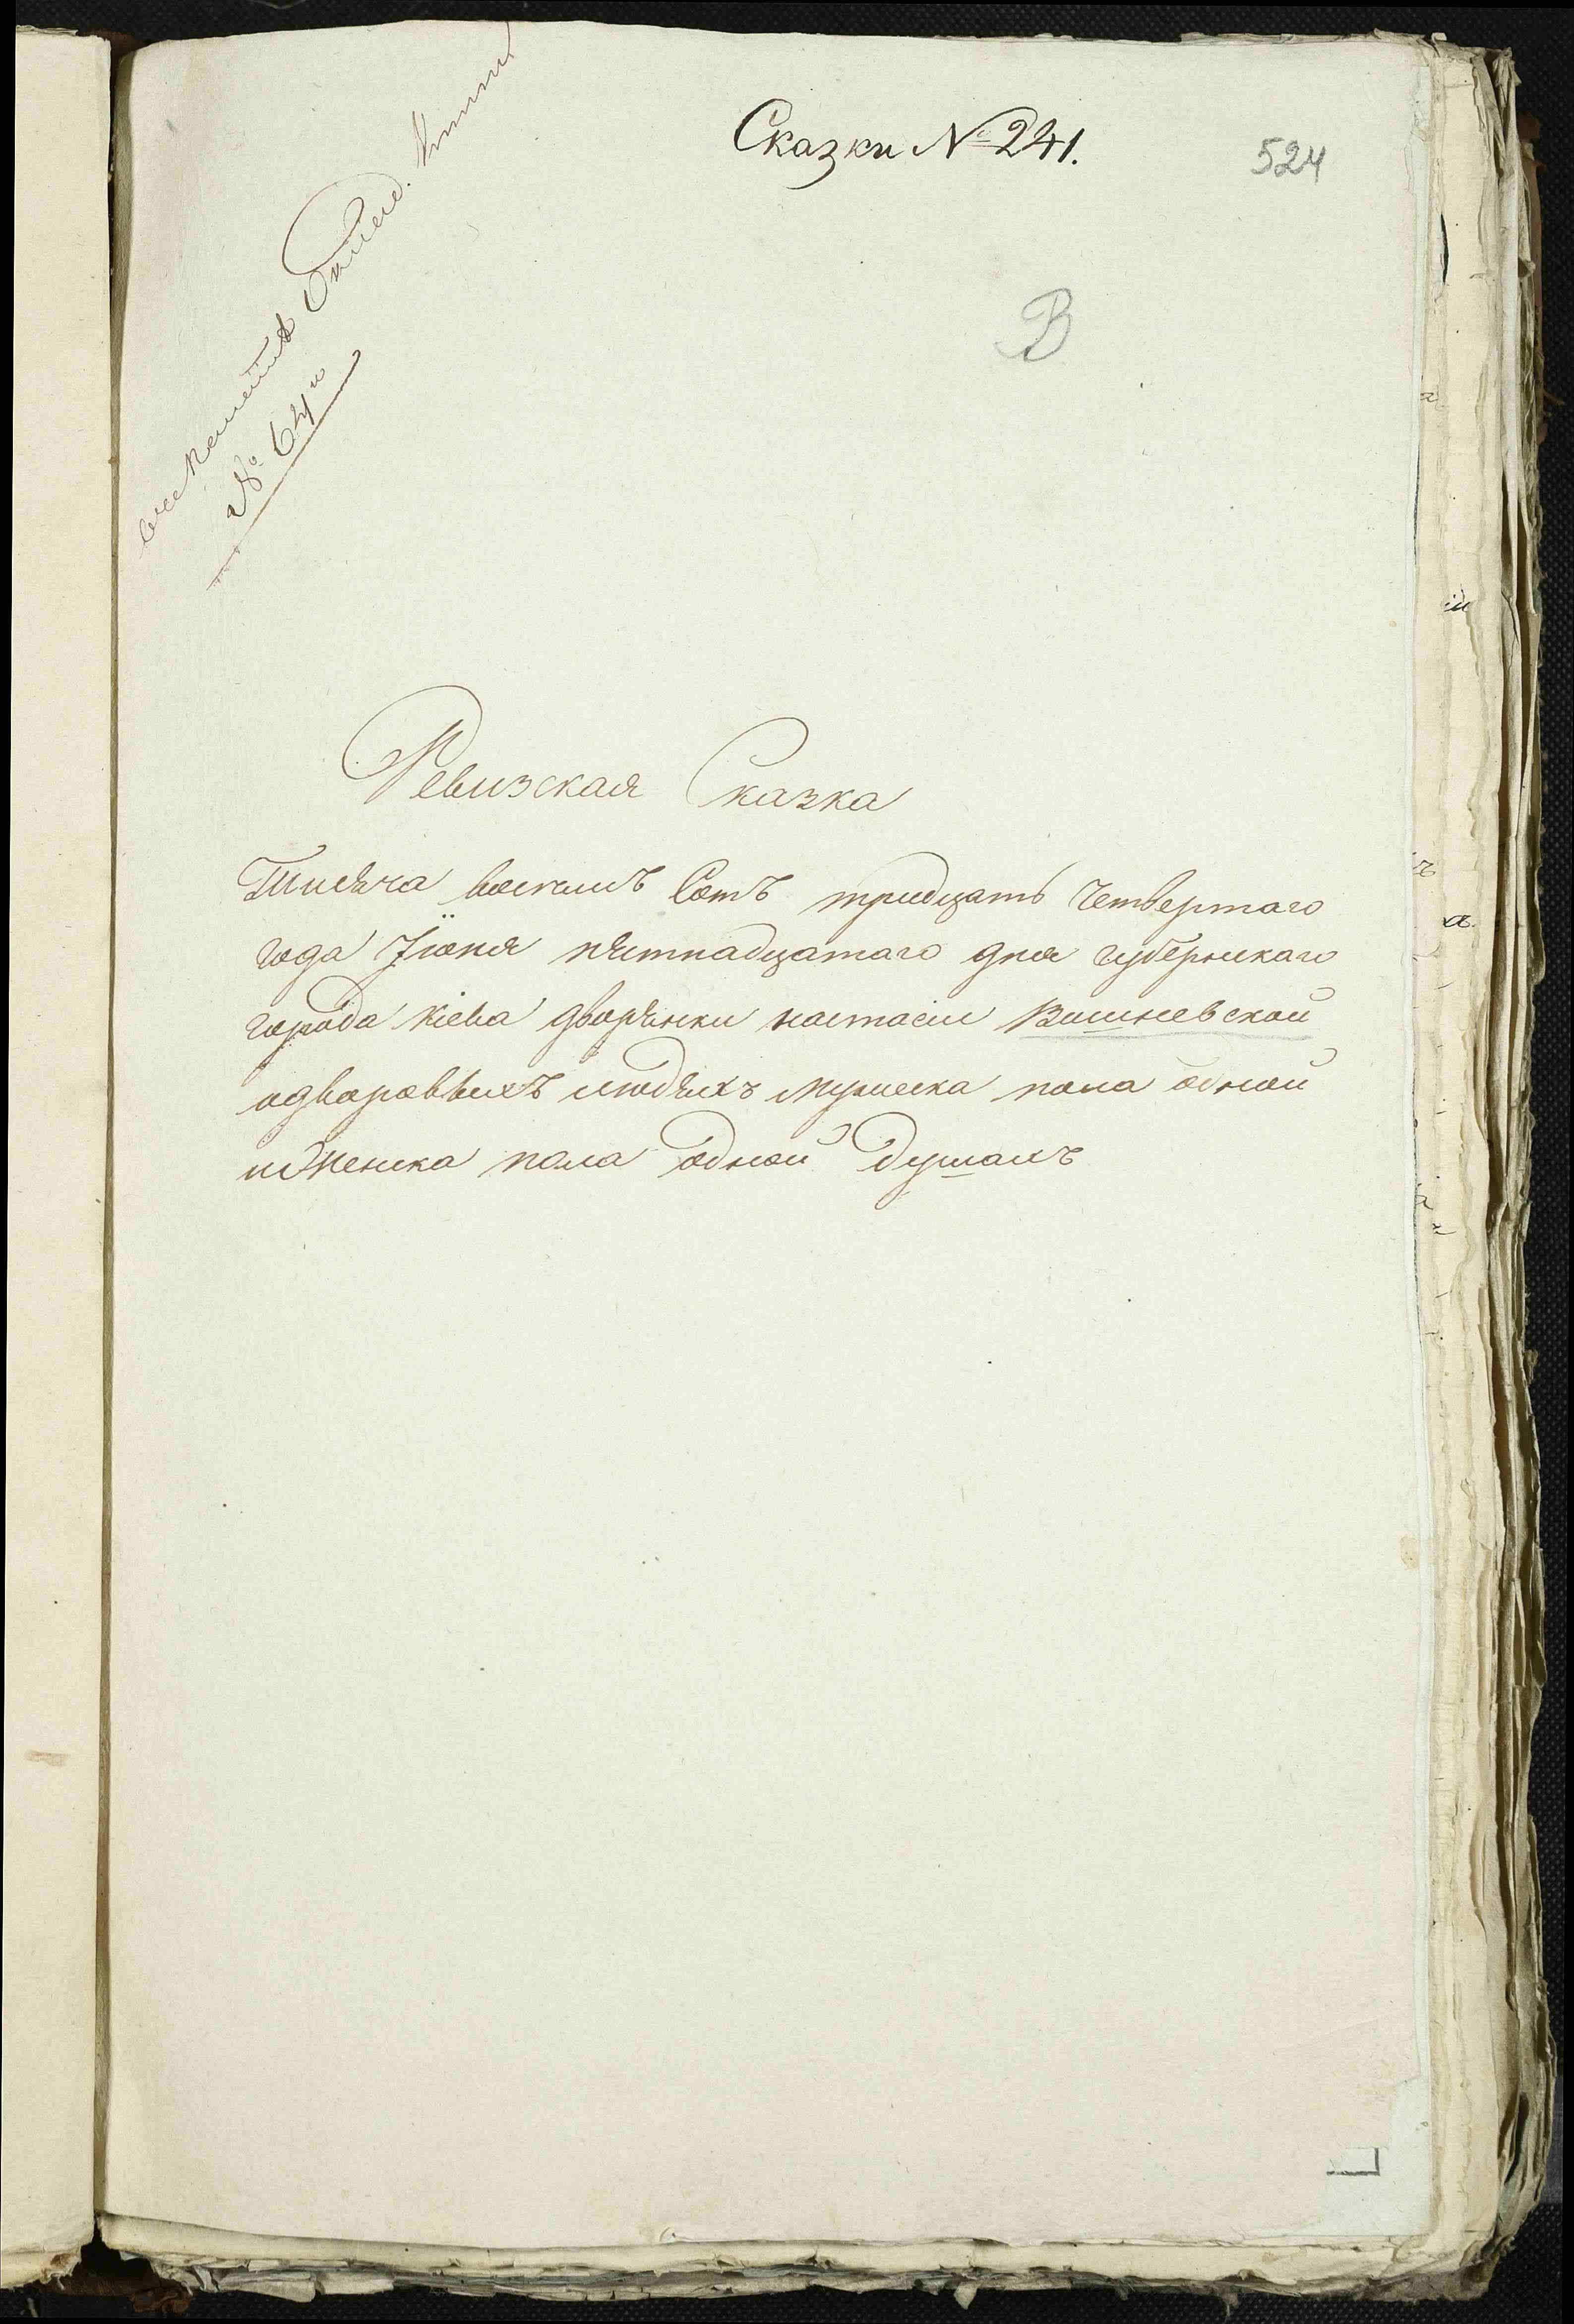 Сказки № 241.
524
В
№ 64и
Ревизская Сказка
Тисяча восемъ Сотъ тридцать Четвертаго
года Іюня пятнадцатаго дня губернскаго
города Кіева дворянки настасіи Вишневской
одворовыхъ людяхъ мужеска пола одной
иженска пола одной душахъ